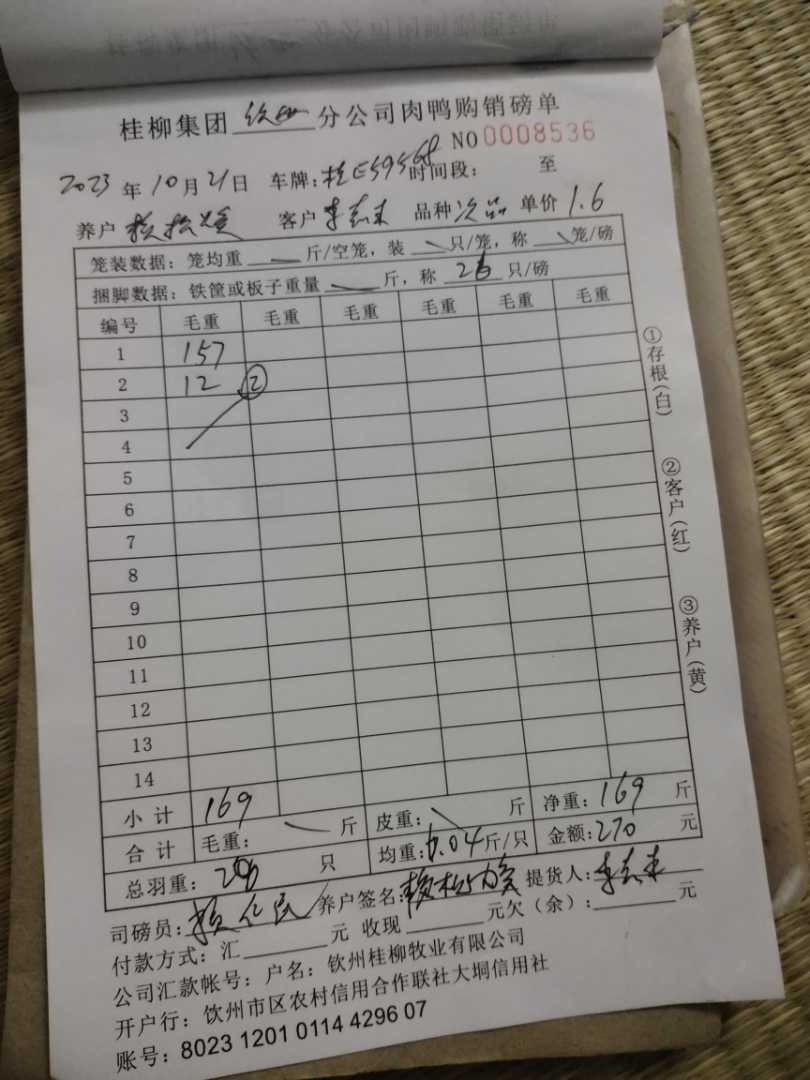 桂柳集团 钦州 分公司肉鸭购销磅单
NO 0008536
2023 年 10 月 21 日 车牌: 桂E59568 时间段: 至
养户 客户 李志来 品种 次品 单价 1.6
笼装数据: 笼均重 斤/空笼, 装 只/笼, 称 笼/磅
捆脚数据: 铁筐或板子重量 斤, 称 28 只/磅
编号 毛重 毛重 毛重 毛重 毛重 毛重
1 157
2 12 ②
3
4
5
6
7
8
9
10
11
12
13
14
小计 169
合计 毛重: 斤 皮重: 斤 净重: 169 斤
总羽重: 28 只 均重: 6.04 斤/只 金额: 270 元
司磅员: 养户签名: 提货人: 李志来
付款方式: 汇 元 收现 元欠 (余): 元
公司汇款帐号: 户名: 钦州桂柳牧业有限公司
开户行: 饮州市区农村信用合作联社大垌信用社
账号: 8023 1201 0114 4296 07
①存根(白)
②客户(红)
③养户(黄)